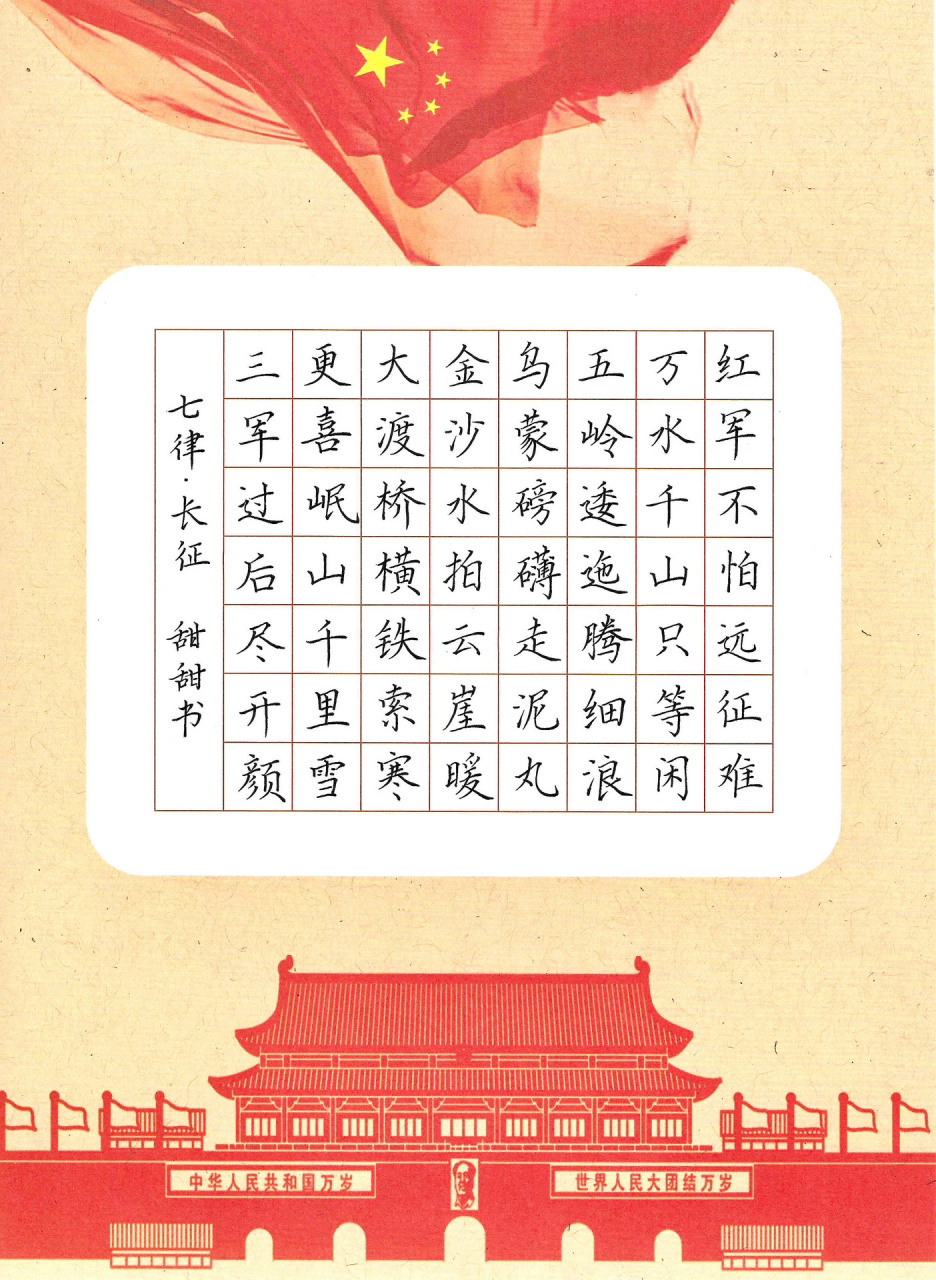 红军不怕远征难
万水千山只等闲
五岭逶迤腾细浪
乌蒙磅礴走泥丸
金沙水拍云崖暖
大渡桥横铁索寒
更喜岷山千里雪
三军过后尽开颜
七律·长征 甜甜书
中华人民共和国万岁
世界人民大团结万岁